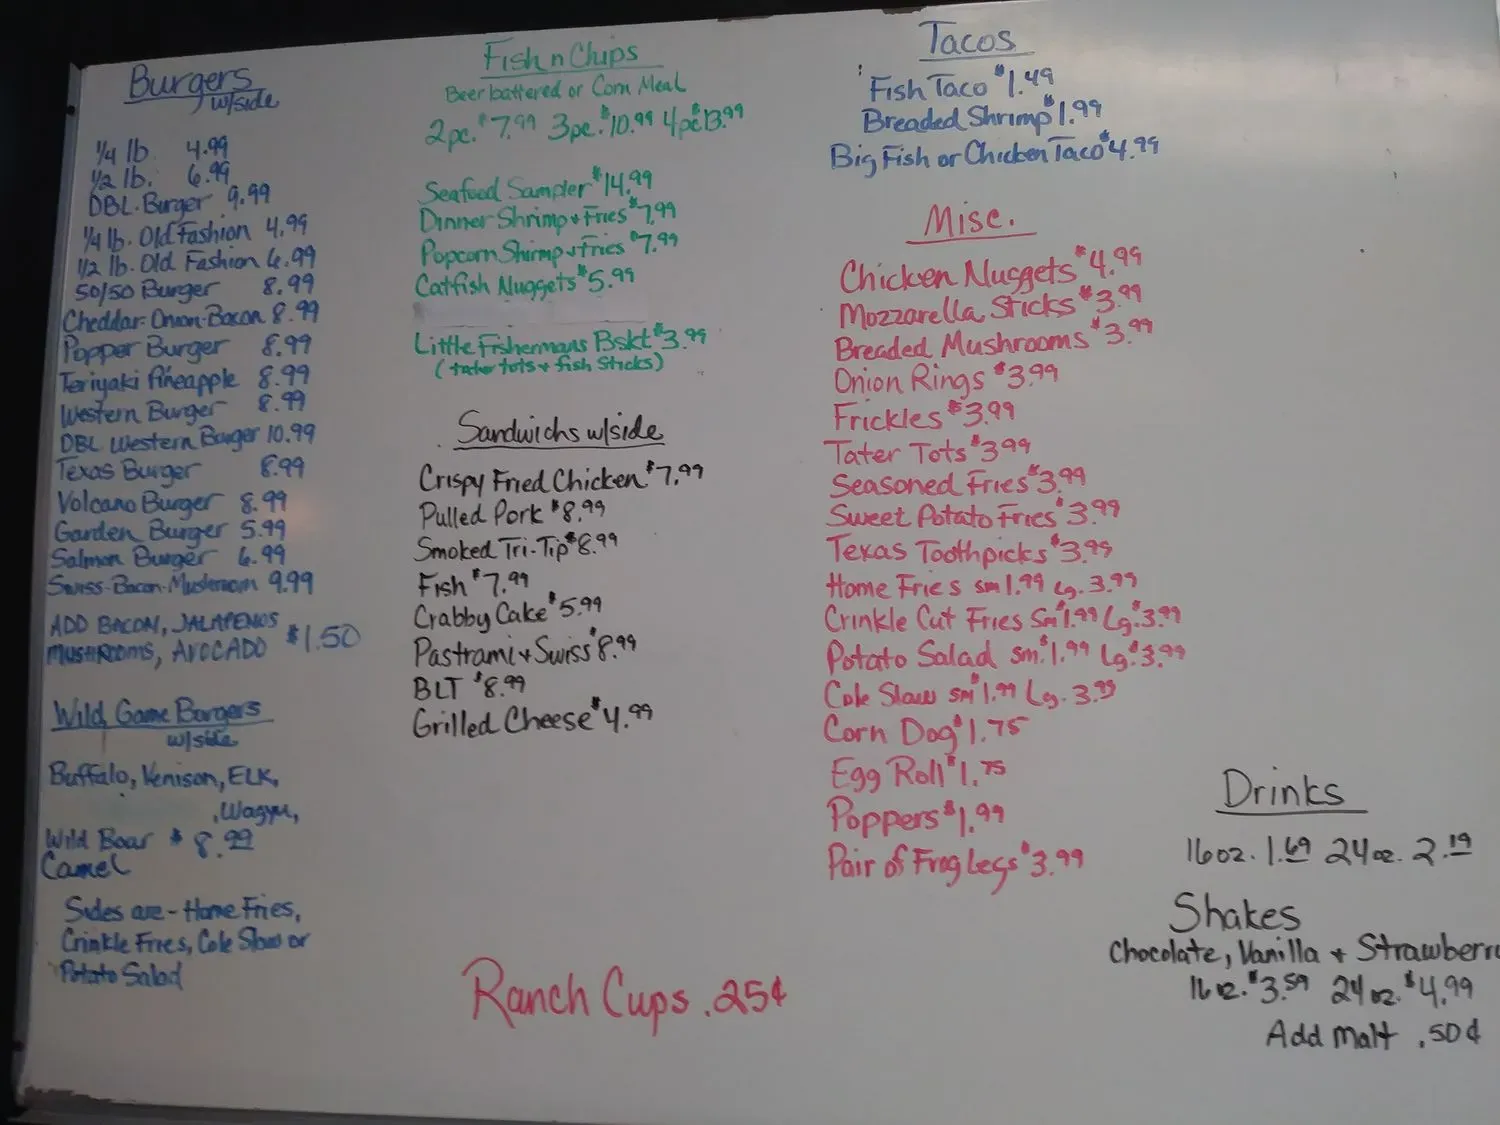 Burgers
w/side
1/4 lb. 4.99
1/2 lb. 6.99
DBL. Burger 9.99
1/4 lb. Old Fashion 4.99
1/2 lb. Old Fashion 6.99
50/50 Burger 8.99
Cheddar-Onion-Bacon 8.99
Popper Burger 8.99
Teriyaki Pineapple 8.99
Western Burger 8.99
DBL Western Burger 10.99
Texas Burger 8.99
Volcano Burger 8.99
Garden Burger 5.99
Salmon Burger 6.99
Swiss-Bacon-Mushroom 9.99
ADD BACON, JALAPENOS
MUSHROOMS, AVOCADO $1.50
Wild Game Burgers
w/side
Buffalo, Venison, ELK,
, Wagyu,
Wild Boar $8.99
Camel
Sides are - Home Fries,
Crinkle Fries, Cole Slaw or
Potato Salad
Fish n Chips
Beer battered or Corn Meal
2pc. $7.99 3pc. $10.99 4pc $13.99
Seafood Sampler $14.99
Dinner Shrimp + Fries $7.99
Popcorn Shrimp + Fries $7.99
Catfish Nuggets $5.99
Little Fishermans Bskt $3.99
(tater tots + fish sticks)
Sandwichs w/side
Crispy Fried Chicken $7.99
Pulled Pork $8.99
Smoked Tri-Tip $8.99
Fish $7.99
Crabby Cake $5.99
Pastrami + Swiss $8.99
BLT $8.99
Grilled Cheese $4.99
Ranch Cups .25¢
Tacos
Fish Taco $1.49
Breaded Shrimp $1.99
Big Fish or Chicken Taco $4.99
Misc.
Chicken Nuggets $4.99
Mozzarella Sticks $3.99
Breaded Mushrooms $3.99
Onion Rings $3.99
Frickles $3.99
Tater Tots $3.99
Seasoned Fries $3.99
Sweet Potato Fries $3.99
Texas Toothpicks $3.99
Home Fries sm 1.99 Lg. 3.99
Crinkle Cut Fries Sm $1.99 Lg. $3.99
Potato Salad sm. $1.99 Lg. $3.99
Cole Slaw sm $1.99 Lg. 3.99
Corn Dog $1.75
Egg Roll $1.75
Poppers $1.99
Pair of Frog Legs $3.99
Drinks
16oz. 1.69 24oz. 2.19
Shakes
Chocolate, Vanilla + Strawberry
16oz. $3.59 24oz. $4.99
Add Malt .50¢